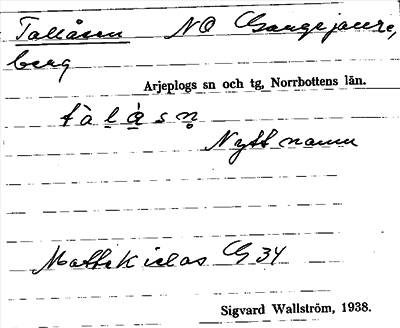 Tallåsen NO Gargejaure,
berg
Arjeplogs sn och tg, Norrbottens län.
tàl̲å̀sn̥
Nytt namn
Matts Kiclas G 34
Sigvard Wallström, 1938.